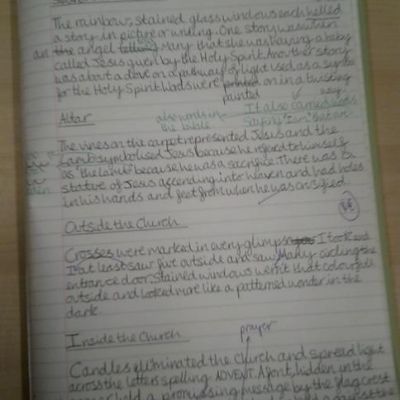 The rainbow, stained glass windows each helled
a story in picture or writing. One story was when
an the angel telling Mary that she was having a baby
called Jesus given by the Holy Spirit. Another story
was about a dove on a pathway of light used as a
for the Holy Spirit. Words were printed on in a twisting
painted way.
Altar
also words in the bible
It also carried
saying
The vines on the carpet represented Jesus and the
Lamb symbolised Jesus because he refered to himself
as "the lamb" because he was a sacrifice. There was a
statue of Jesus accending into heaven and had holes
in his hands and feet from when he was crusified.
Outside the Church
Crosses were marked in every glimpse I took and
I at least saw five outside and saw Mary circling the
entrance door. Stained windows weren't that colourful
outside and looked more like a patterned wonder in the
dark.
Inside the Church
prayer
Candles eliminated the church and spread light
across the letters spelling ADVENT. A font, hidden in the
held a promising message by the